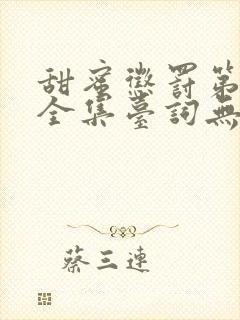 甜蜜懲罰第
全集臺詞無
蔡三連